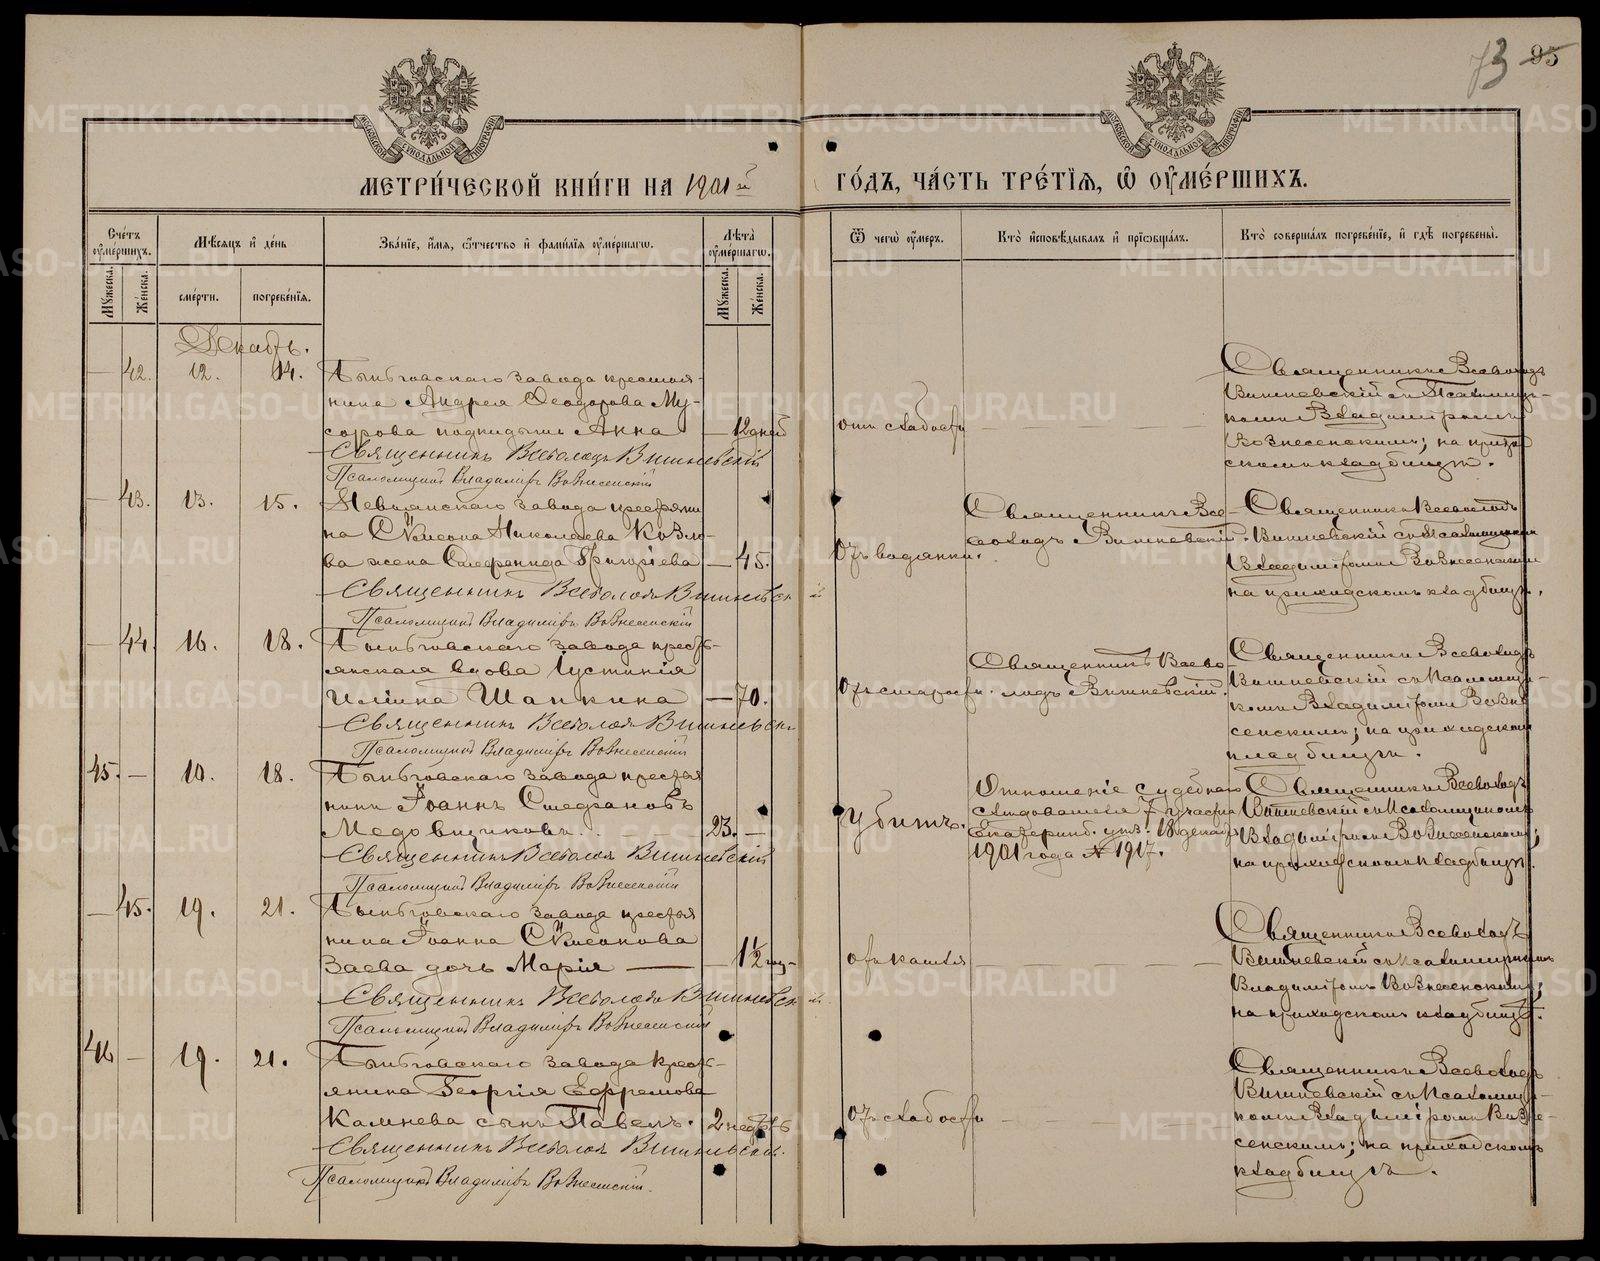 73 95
МЕТРИ́ЧЕСКОЙ КНИ́ГИ НА 1901й ГО́ДЪ, ЧА́СТЬ ТРЕ́ТІѦ, Ѿ ОУМЕ́РШИХЪ.
МОСКОВСКОЙ СѴНОДАЛЬНОЙ ТИПОГРАФІИ
МОСКОВСКОЙ СѴНОДАЛЬНОЙ ТИПОГРАФІИ
Сче́тъ оуме́ршихъ.
Мꙋжеска.
Же́нска.
Мѣсѧцъ и де́нь
сме́рти.
погребе́нїѧ.
Зва́нїе, и́мѧ, ѻ҆́тчество и фами́лїѧ оуме́ршагѡ.
Лѣта̀ оуме́ршагѡ.
Мꙋжеска.
Же́нска.
Ѿ чегѡ̀ оу́меръ.
Кто̀ исповѣ́дывалъ и прїѻбща́лъ.
Кто̀ соверша́лъ погребе́нїе, и гдѣ̀ погребены̀.
Декабрь.
— 42. 12. 14.
Быньговскаго завода крестья-
нина Андрея Ѳеодорова Му-
сорова подкидышъ Анна — 12 дней
Священникъ Всеволодъ Вишневскій
Псаломщикъ Владиміръ Вознесенскій
отъ слабости
Священникъ Всеволодъ
Вишневскій съ Псаломщи-
комъ Владиміромъ
Вознесенскимъ; на приход-
скомъ кладбищѣ.
— 43. 13. 15.
Невьянскаго завода крестьяни
на Сѵмеона Николаева Козло-
ва жена Стефанида Григоріева — 45.
Священникъ Всеволодъ Вишневскій
Псаломщикъ Владиміръ Вознесенскій
Отъ водянки.
Священникъ Все-
володъ Вишневскій.
Священникъ Всеволодъ
Вишневскій съ Псаломщикомъ
Владиміромъ Вознесенскимъ
на приходскомъ кладбищѣ.
— 44. 16. 18.
Быньговскаго завода кресть-
янская вдова Іустинія
Иліина Шапкина — 70.
Священникъ Всеволодъ Вишневскій
Псаломщикъ Владиміръ Вознесенскій
Отъ старости.
Священникъ Всево-
лодъ Вишневскій.
Священникъ Всеволодъ
Вишневскій съ Псаломщи-
комъ Владиміромъ Возне
сенскимъ; на приходскомъ
кладбищѣ.
45. — 10. 18.
Быньговскаго завода крестья
нинъ Іоаннъ Стефановъ
Медовщиковъ. 23. —
Священникъ Всеволодъ Вишневскій
Псаломщикъ Владиміръ Вознесенскій
Убитъ.
Отношеніе судебнаго
слѣдователя 7 участка
Екатеринб. уѣз. 18 декабря
1901 года № 1917.
Священникъ Всеволодъ
Вишневскій съ Псаломщикомъ
Владиміромъ Вознесенскимъ;
на приходскомъ кладбищѣ.
— 45. 19. 21.
Быньговскаго завода крестья
нина Іоанна Сѵмеонова
Заева дочь Марія — 1½ мц-
Священникъ Всеволодъ Вишневскій
Псаломщикъ Владиміръ Вознесенскій
отъ кашля
Священникъ Всеволодъ
Вишневскій съ Псаломщикомъ
Владиміромъ Вознесенскимъ;
на приходскомъ кладбищѣ.
46 — 19. 21.
Быньговскаго завода кресть-
янина Георгія Ефремова
Камнева сынъ Павелъ. 2 недѣль
Священникъ Всеволодъ Вишневскій
Псаломщикъ Владиміръ Вознесенскій.
Отъ слабости
Священникъ Всеволодъ
Вишневскій съ Псаломщи-
комъ Владиміромъ Возне-
сенскимъ; на приходскомъ
кладбищѣ.
METRIKI.GASO-URAL.RU